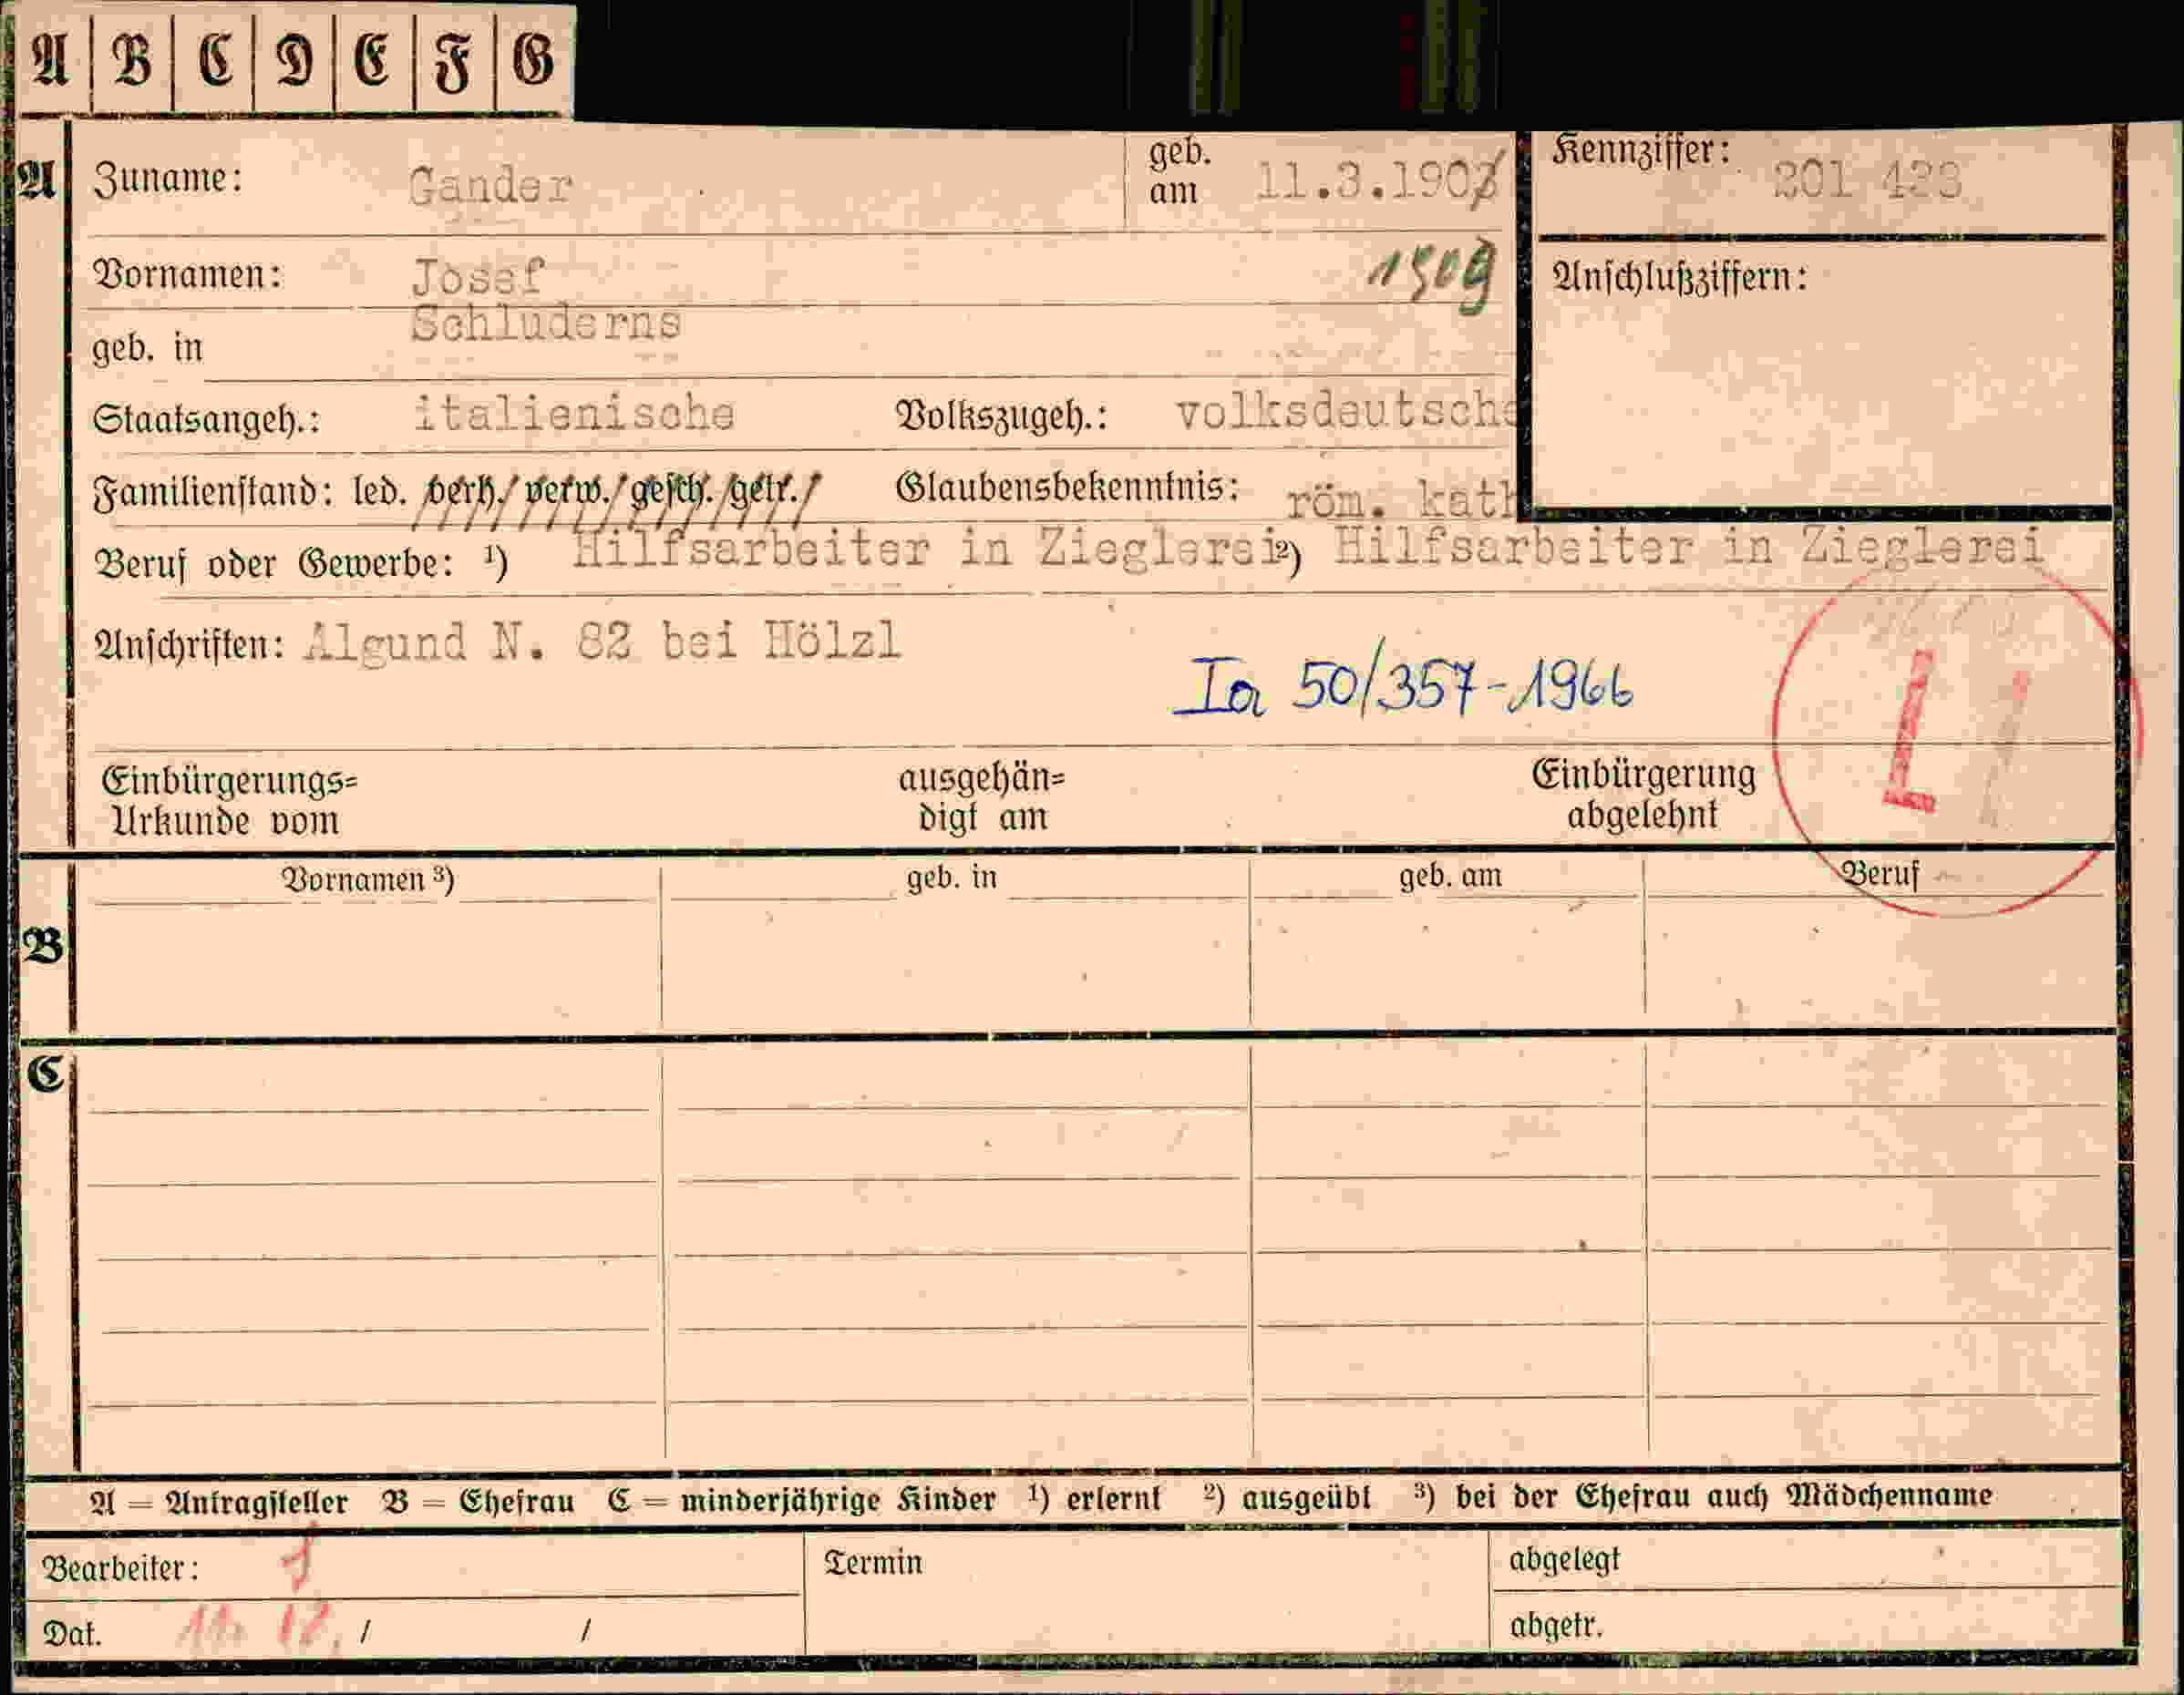 A B C D E F G
A Zuname: Gander geb. am 11.3.190 Kennziffer: 201 423
Vornamen: Josef 1909 Anschlußziffern:
geb. in Schluderns
Staatsangeh.: italienische Volkszugeh.: volksdeutsche
Familienstand: led. verh./ verw./ gesch./ getr./ Glaubensbekenntnis: röm. kath
Beruf oder Gewerbe: ¹) Hilfsarbeiter in Zieglerei ²) Hilfsarbeiter in Zieglerei
Anschriften: Algund N. 82 bei Hölzl
Ia 50/357-1966
Einbürgerungs= ausgehän= Einbürgerung
Urkunde vom digt am abgelehnt
Vornamen ³) geb. in geb. am Beruf
B
C
A = Antragsteller B = Ehefrau C = minderjährige Kinder ¹) erlernt ²) ausgeübt ³) bei der Ehefrau auch Mädchenname
Bearbeiter: Termin abgelegt
Dat. 11. 12. / / abgetr.